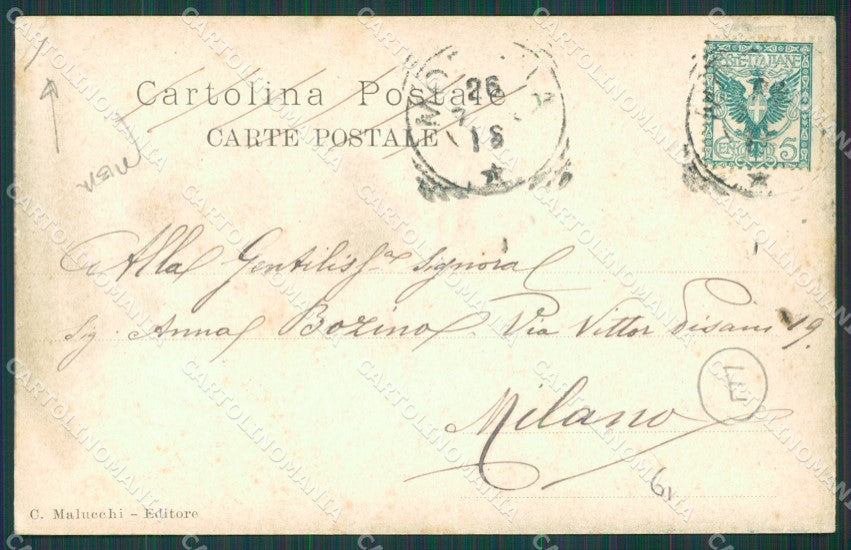 Cartolina Postale
CARTE POSTALE
26
15
POSTE ITALIANE
CENT. 5
Alla Gentiliss.ma Signora
Sig. Anna Bozino Via Vittor Pisani 19.
Milano
C. Malucchi - Editore
CARTOLINOMANIA